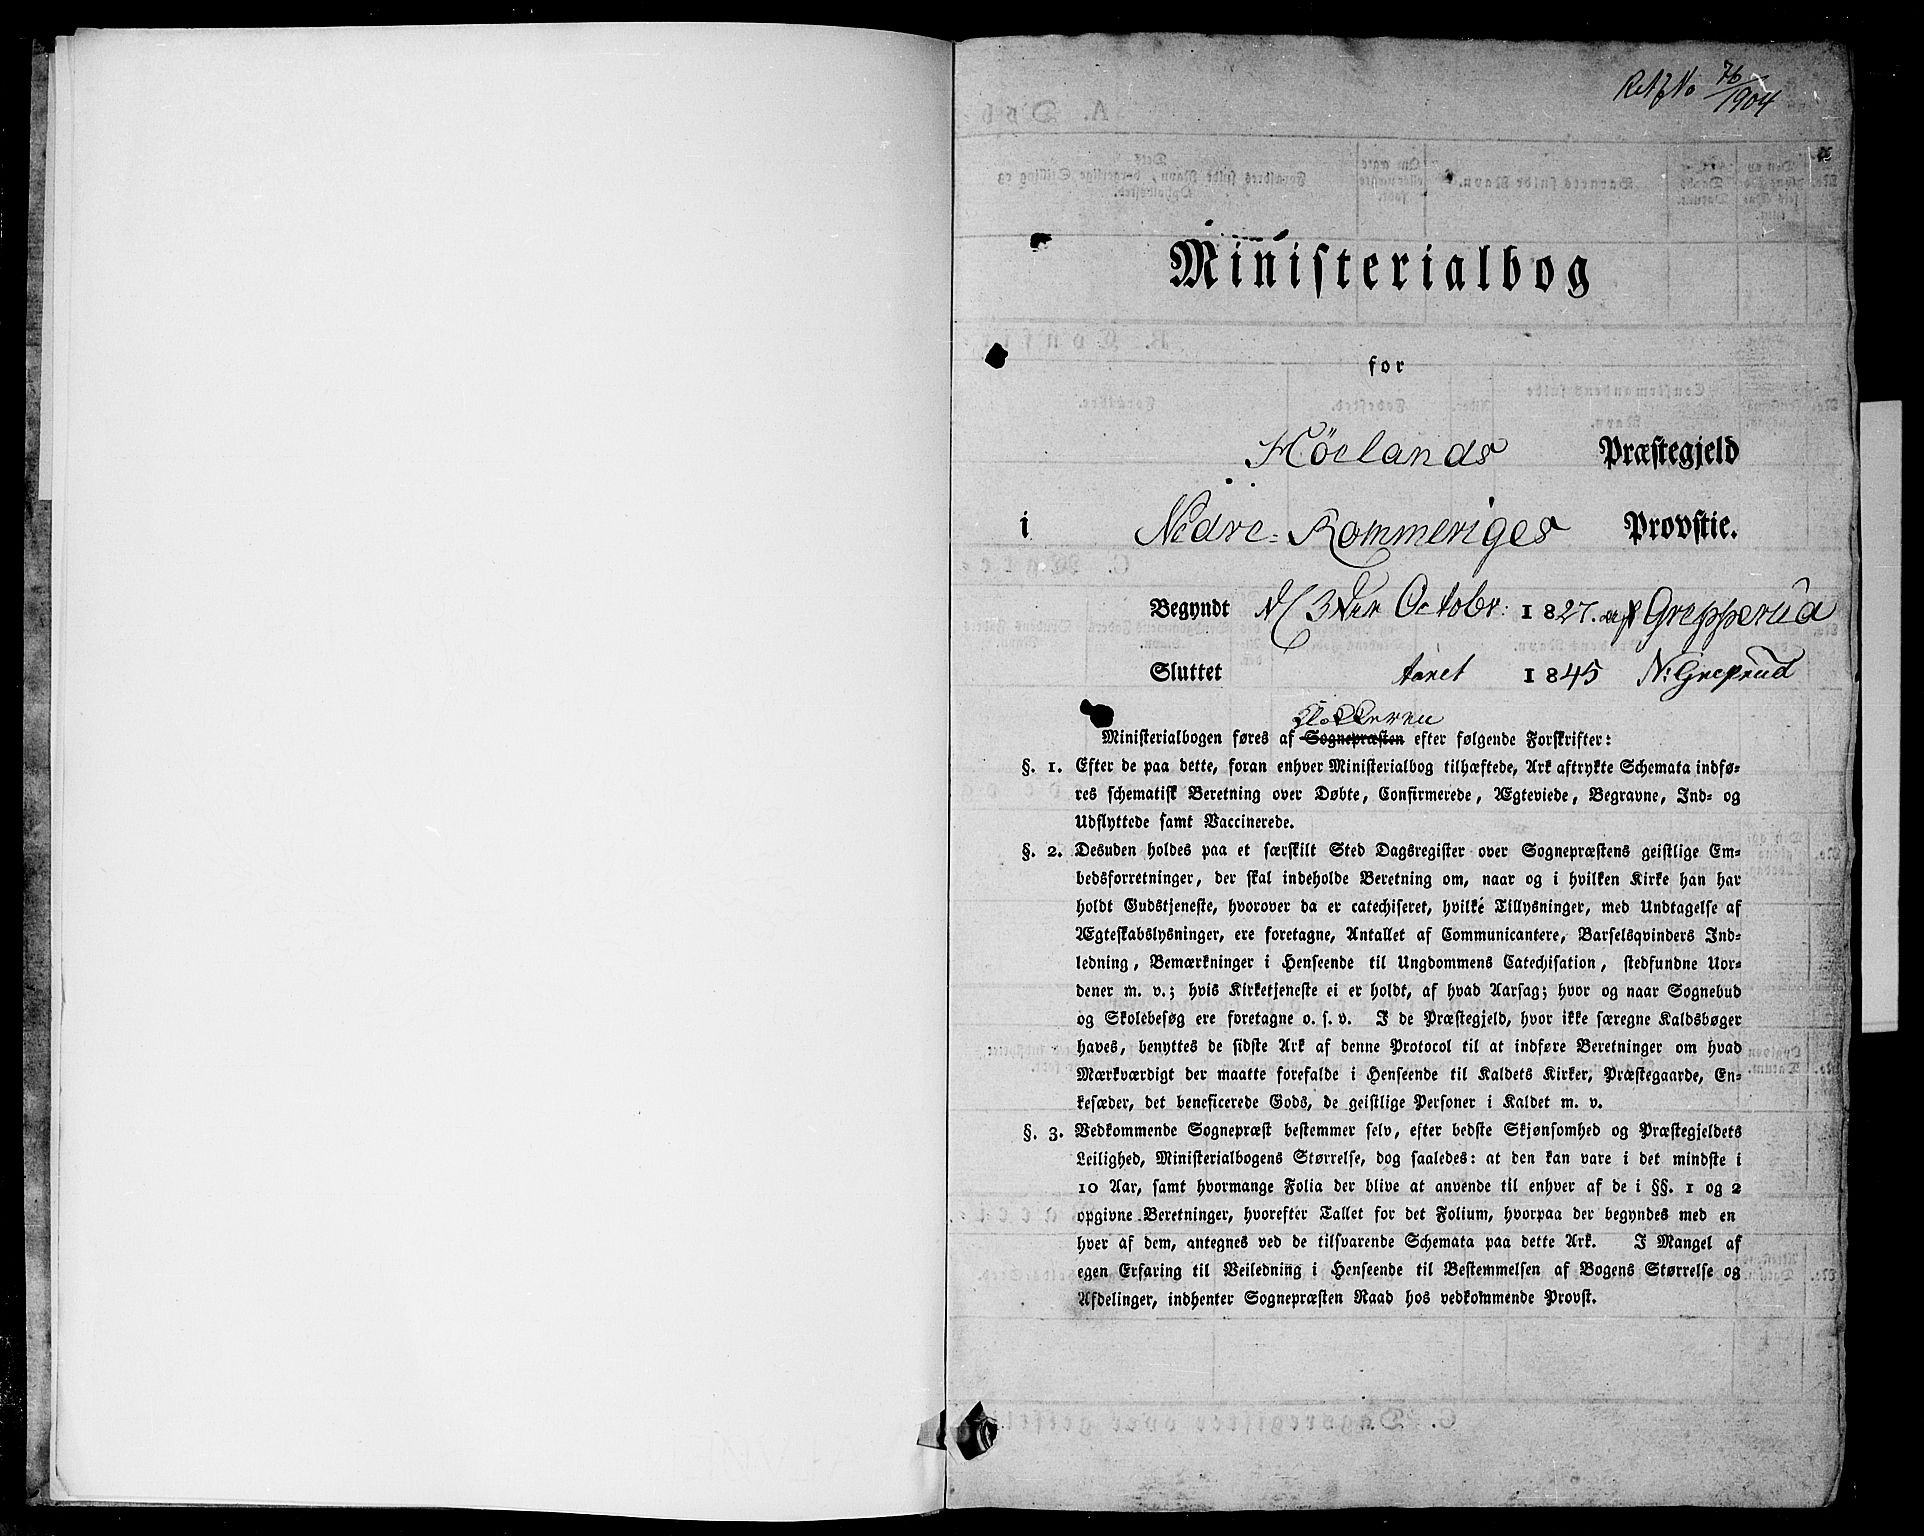 No 76/1904
Ministerialbog
for
Höelands Præstegjeld
i Nedre-Rommeriges Provstie.
Begyndt d 3der Octobr: 1827. af Grepperud
Sluttet Aaret 1845 N: Greprud
Klokkeren
Ministerialbogen føres af Sognepræsten efter følgende Forskrifter:
§. 1. Efter de paa dette, foran enhver Ministerialbog tilhæftede, Ark aftrykte Schemata indfø-
res schematisk Beretning over Døbte, Confirmerede, Ægteviede, Begravne, Ind- og
Udflyttede samt Vaccinerede.
§. 2. Desuden holdes paa et særskilt Sted Dagsregister over Sognepræstens geistlige Em-
bedsforretninger, der skal indeholde Beretning om, naar og i hvilken Kirke han har
holdt Gudstjeneste, hvorover da er catechiseret, hvilke Tillysninger, med Undtagelse af
Ægteskabslysninger, ere foretagne, Antallet af Communicantere, Barselqvinders Ind-
ledning, Bemærkninger i Henseende til Ungdommens Catechisation, stedfundne Uor-
dener m. v.; hvis Kirketjeneste ei er holdt, af hvad Aarsag; hvor og naar Sognebud
og Skolebesøg ere foretagne o. s. v. I de Præstegjeld, hvor ikke særegne Kaldsbøger
haves, benyttes de sidste Ark af denne Protocol til at indføre Beretninger om hvad
Mærkværdigt der maatte forefalde i Henseende til Kaldets Kirker, Præstegaarde, En-
kesæder, det beneficerede Gods, de geistlige Personer i Kaldet m. v.
§. 3. Vedkommende Sognepræst bestemmer selv, efter bedste Skjønsomhed og Præstegjeldets
Leilighed, Ministerialbogens Størrelse, dog saaledes: at den kan vare i det mindste i
10 Aar, samt hvormange Folia der blive at anvende til enhver af de i §§. 1 og 2
opgivne Beretninger, hvorefter Tallet for det Folium, hvorpaa der begyndes med en
hver af dem, antegnes ved de tilsvarende Schemata paa dette Ark. I Mangel af
egen Erfaring til Veiledning i Henseende til Bestemmelsen af Bogens Størrelse og
Afdelinger, indhenter Sognepræsten Raad hos vedkommende Provst.